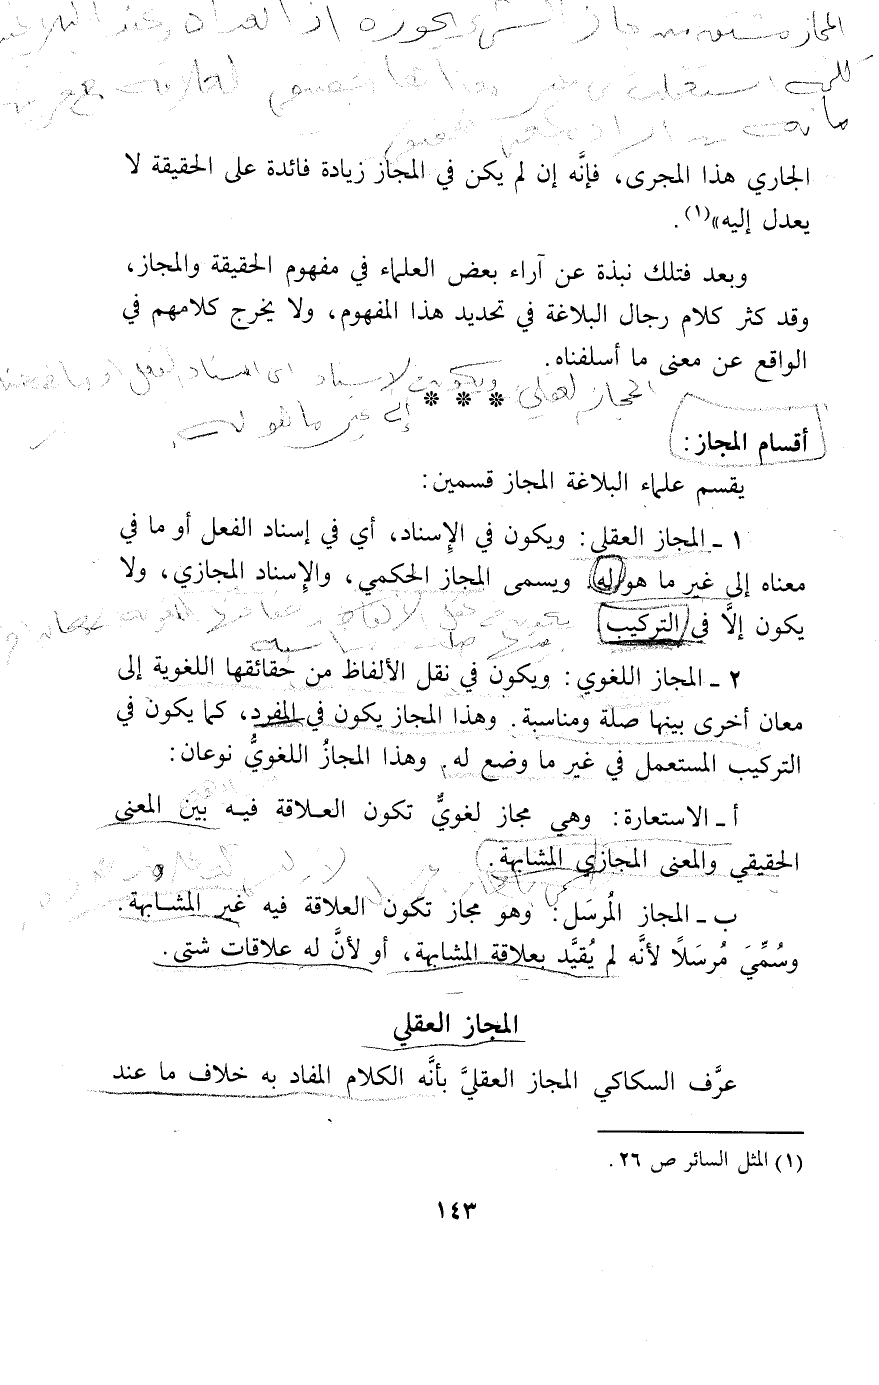 المجاز مشتق من جاز الشيء يجوزه إذا
كلمة استعملت في غير لعلاقة مع قرينة
مانعة من
الجاري هذا المجرى، فإنَّه إن لم يكن في المجاز زيادة فائدة على الحقيقة لا
يعدل إليه»(١).
وبعد فتلك نبذة عن آراء بعض العلماء في مفهوم الحقيقة والمجاز،
وقد كثر كلام رجال البلاغة في تحديد هذا المفهوم، ولا يخرج كلامهم في
الواقع عن معنى ما أسلفناه.
ويكون الإسناد أي إسناد الفعل أو ما في معناه
المجاز العقلي
* * *
إلى غير ما هو له
أقسام المجاز:
يقسم علماء البلاغة المجاز قسمين:
١ ـ المجاز العقلي: ويكون في الإِسناد، أي في إسناد الفعل أو ما في
معناه إلى غير ما هو له، ويسمى المجاز الحكمي، والإِسناد المجازي، ولا
يكون إلَّا في التركيب
يكون في نقل الألفاظ
٢ ـ المجاز اللغوي: ويكون في نقل الألفاظ من حقائقها اللغوية إلى
معان أخرى بينها صلة ومناسبة. وهذا المجاز يكون في المفرد، كما يكون في
التركيب المستعمل في غير ما وضع له. وهذا المجازُ اللغويُّ نوعان:
أ ـ الاستعارة: وهي مجاز لغويٌّ تكون العلاقة فيه بين المعنى
الحقيقي والمعنى المجازي المشابهة.
ب ـ المجاز المُرسَل: وهو مجاز تكون العلاقة فيه غير المشابهة.
وسُمِّيَ مُرسَلًا لأنَّه لم يُقيَّد بعلاقة المشابهة، أو لأنَّ له علاقات شتى.
المجاز العقلي
عرَّف السكاكي المجاز العقليَّ بأنَّه الكلام المفاد به خلاف ما عند
(١) المثل السائر ص ٢٦.
١٤٣